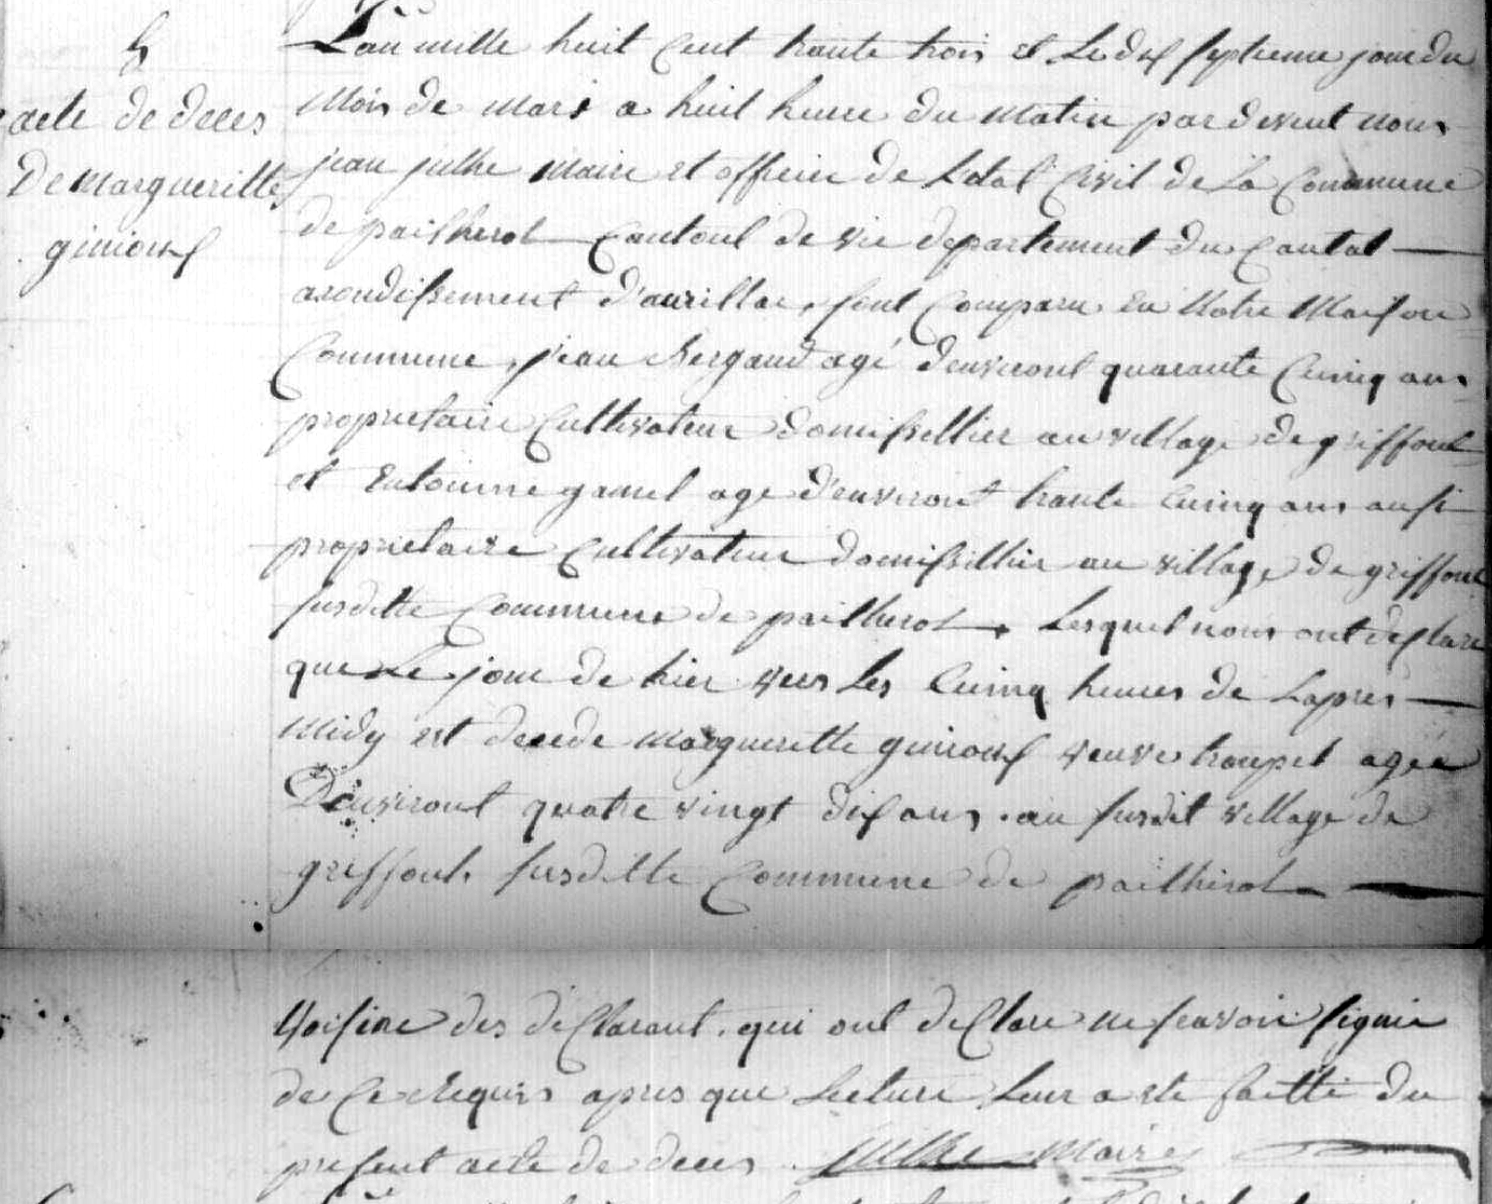 5
acte de deces
De Margueritte
ginioux
L'an mille huit Cent trante trois et Le dix septieme jour du
Mois de mars a huit heure du Matin par devent nous
jean julhe Maire et officier de Letat Civil de La Commune
de pailherol Cantont de vic departement du Cantal
arondissement d'aurillac, sont Comparu En Notre Maison
Commune, jean Bergaud agé d'environt quarante Cuinq ans
proprietaire Cultivateur domissillier au village de griffoul
et Entoinne gamel age d'environt trante Cuinq ans aussi
proprietaire Cultivateur domissillier au village de griffoul
susditte Commune de pailherol, Lesquel nous ont desClare
que Le jour de hier vers Les Cuinq heures de Lapres
Midy est decede Margueritte ginioux veuve troupel agée
D'environt quatre vingt dix ans. au susdit village de
griffoul susditte Commune de pailherol
Voisine des desClarant. qui ont deClare ne scavoir signier
de Ce Requis apres que Lecture Leur a ete faitte du
present acte de deces julhe Maire